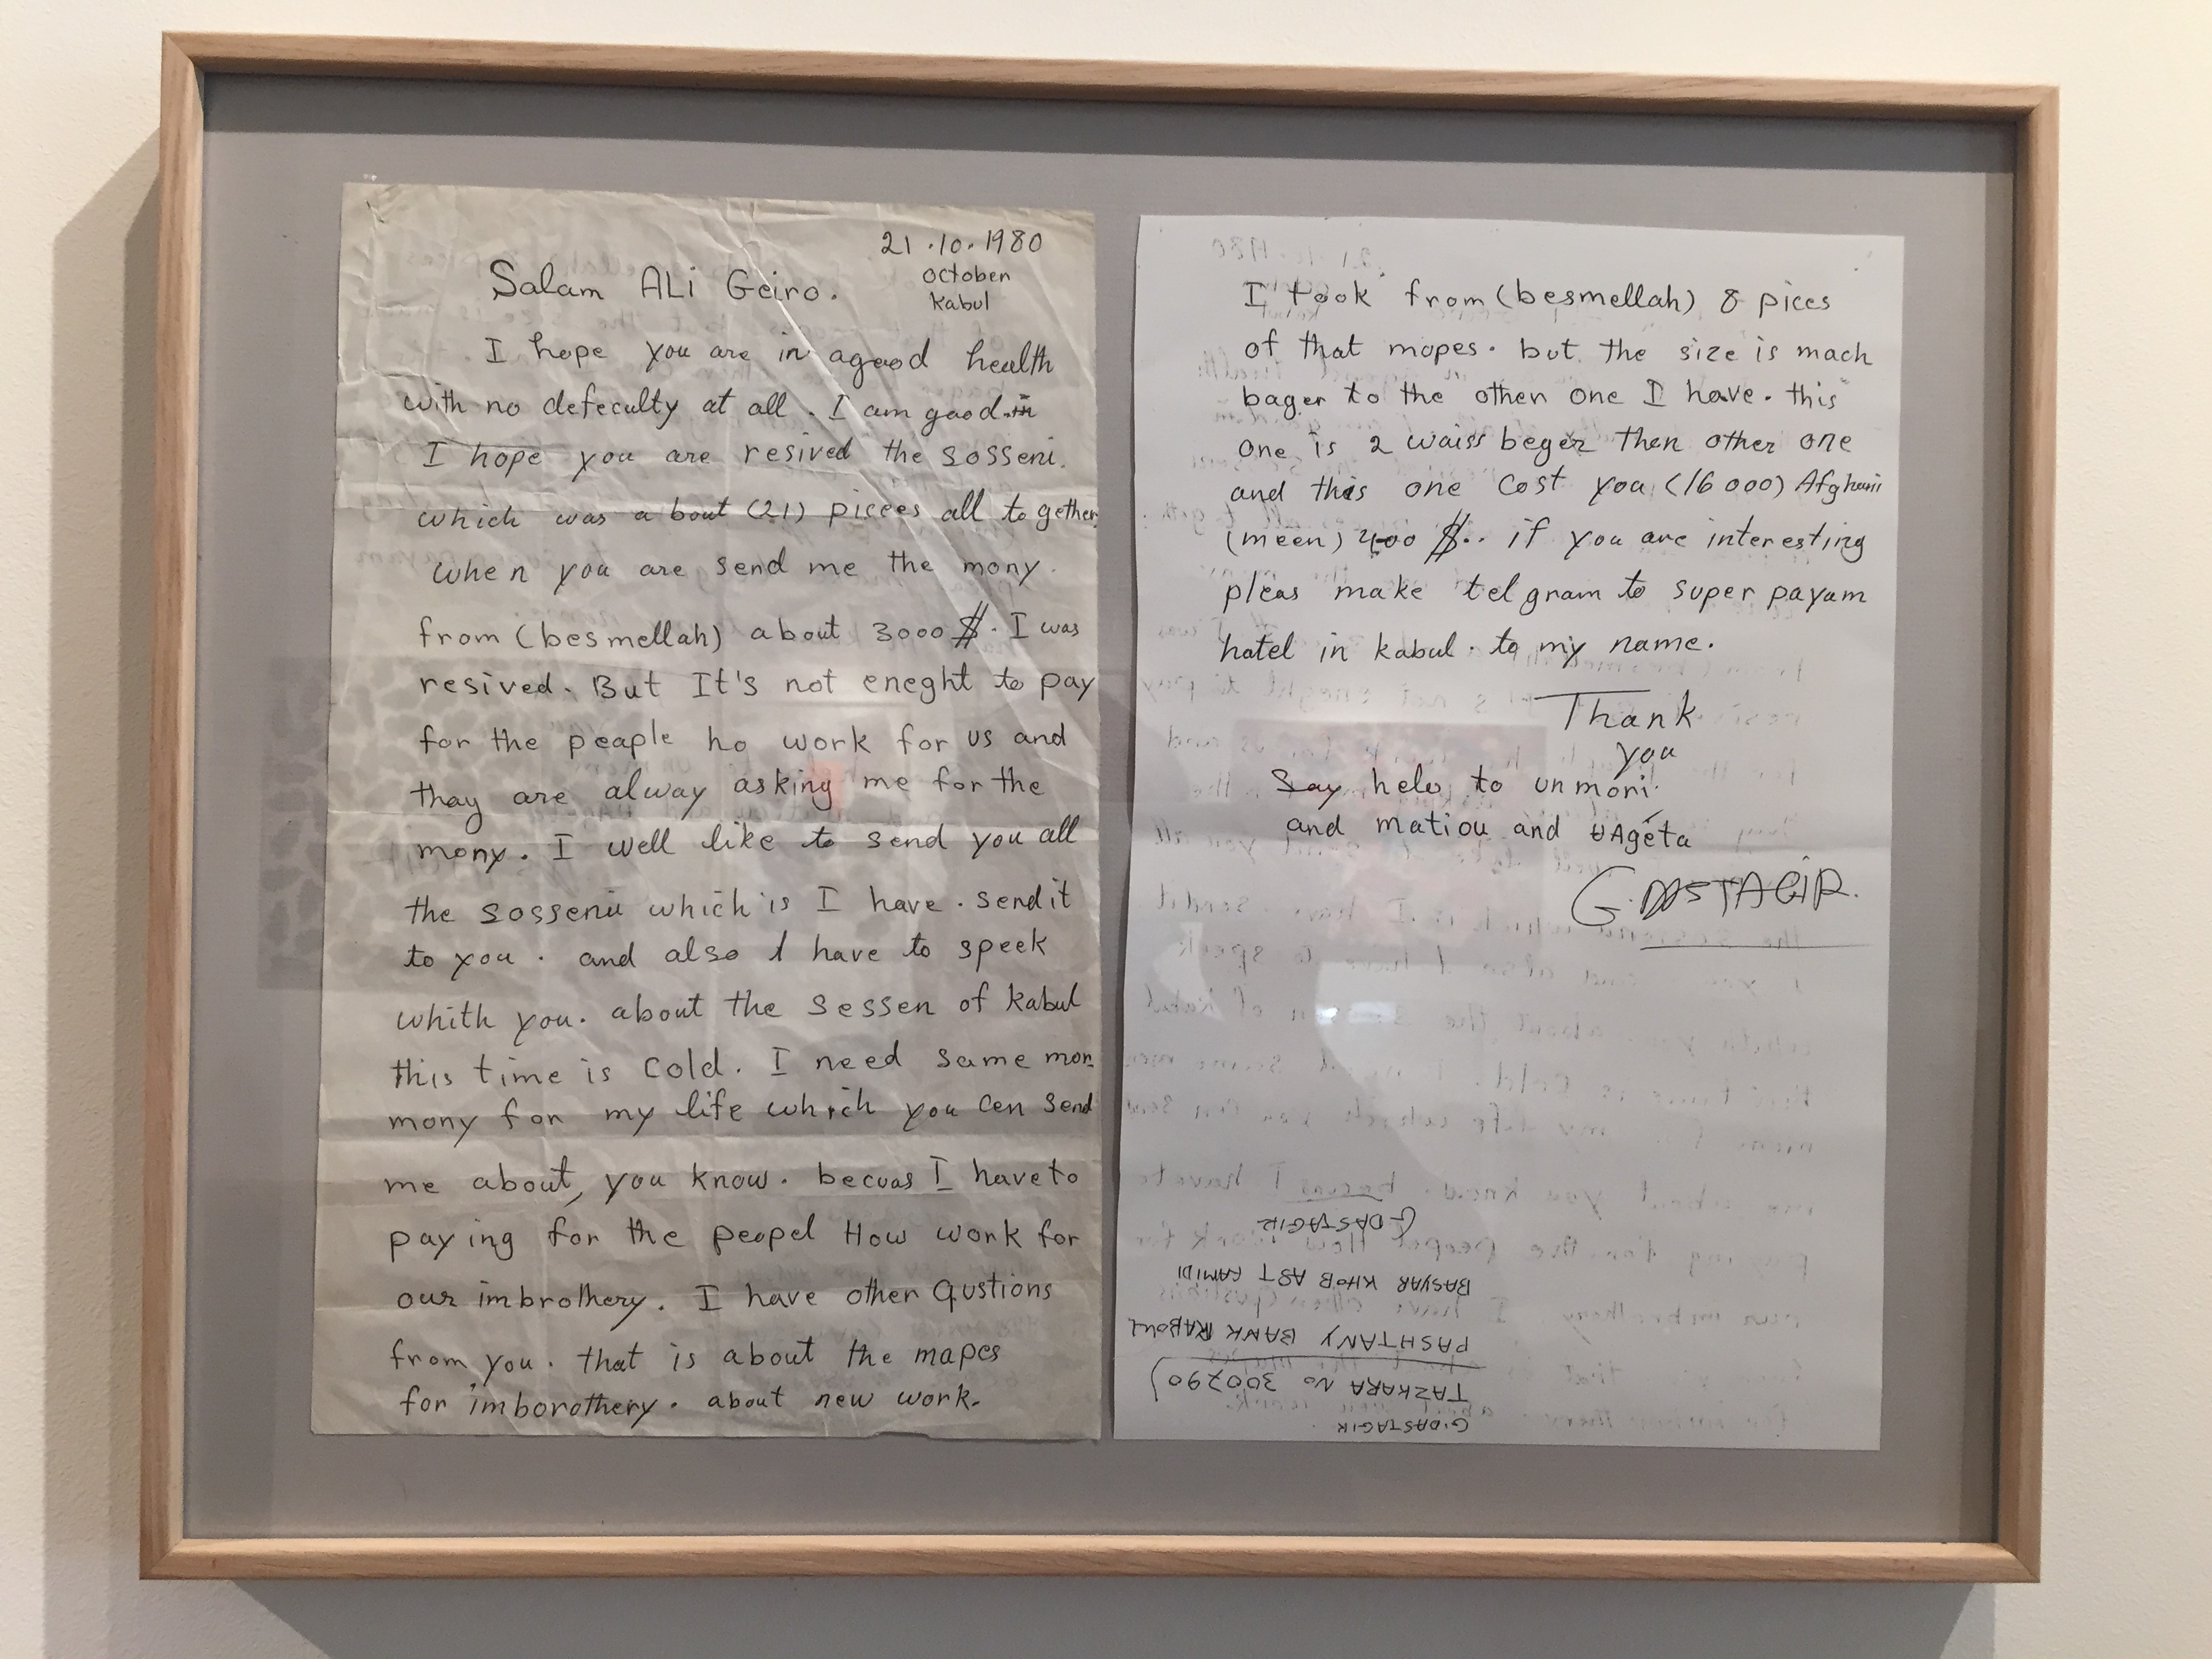 21.10.1980
October
Kabul
Salam ALi Geiro.
I hope you are in agood health
with no defeculty at all. I am good.
I hope you are resived the sosseni.
which was a bout (21) picees all to gether
when you are send me the mony.
from (besmellah) about 3000 $. I was
resived. But It's not eneght to pay
for the peaple ho work for us and
thay are alway asking me for the
mony. I well like to send you all
the sossenii which is I have. send it
to you. and also I have to speek
whith you. about the sessen of kabul
this time is cold. I need same mon
mony for my life which you cen send
me about, you know. becuas I have to
pay ing for the peopel How work for
our imbrothery. I have other Qustions
from you. that is about the mapes
for imborothery. about new work.
I took from (besmellah) 8 pices
of that mopes. but the size is mach
bager to the other one I have. this
one is 2 waiss beger then other one
and this one cost you (16 000) Afghani
(meen) 400 $.. if you are interesting
pleas make tel gram to super payam
hotel in kabul. to my name.
Thank
you
Say helo to un moni.
and matiou and Ageta
G. DASTAGIR.
G. DASTAGIR
BASYAR KHOB AST HAMIDI
PASHTANY BANK KABOUL
TAZKARA No 300790)
G.DASTAGIR